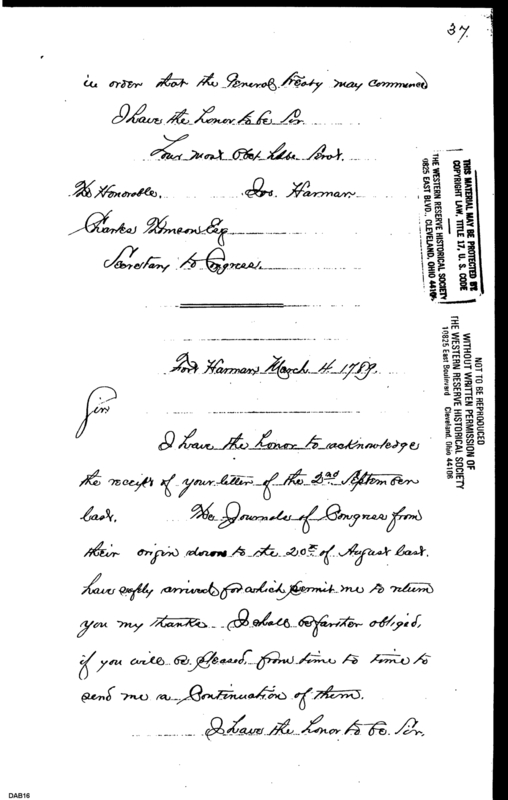 37.
in order that the General Treaty may commence
I have the honor to be Sir
Your most Obet Hble Servt.
The Honorable. Jos. Harmar
Charles Thomson Esq
Secretary to Congress.
Fort Harmar March 4 1789.
Sir
I have the honor to acknowledge
the receipt of your letter of the 2nd September
last. The Journals of Congress from
their origin down to the 20th of August last.
have safely arrived for which permit me to return
you my thanks I shall be farther obliged,
if you will be pleased from time to time to
send me a Continuation of them.
I have the honor to be Sir.
THIS MATERIAL MAY BE PROTECTED BY
COPYRIGHT LAW, TITLE 17, U. S. CODE
THE WESTERN RESERVE HISTORICAL SOCIETY
10825 EAST BLVD., CLEVELAND, OHIO 44106
NOT TO BE REPRODUCED
WITHOUT WRITTEN PERMISSION OF
THE WESTERN RESERVE HISTORICAL SOCIETY
10825 East Boulevard Cleveland, Ohio 44106
DAB16